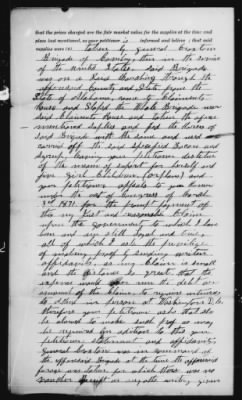 that the prices charged are the fair market value for the supplies at the time and
place last mentioned, as your petitioner is informed and believes; that said
supplies were (6) taken by general Croxton
Brigade of Cavalry then in the service
of the United States said Brigade
was on a Raid Marching through the
aforesaid County and State from the
State of Alabama came to Claimants
House and Stoped the Whole Brigade near
said Claimants House and taken the afore
mentioned supplies and fed the horses of
said Brigade with the same and used and
carried off the said specified Bacon and
Syrup leaving your petitioner destitute
of the means of support for herself and
five girl Children (orphans) and
your petitioner appeals to you Known
under the act of Congress of March
3rd 1871 for the prompt payment of
this my Just and reasonable Claim
upon the government to which I have
been in my self loyal and true,
all of which I ask the privilege
of making proof by sending written
affidavits, as my Claim is small
and the distance so great that the
expense would over run the
amount of the Claim to require witnesses
to attend in person at Washington D.C.
therefore your petitioner asks that she
be alowed to make such proof as may
be required in addition to this your
petitioners statement and affidavits,
General Croxton was in command of
the afforesaid Brigade at the time the afforesaid
forage was taken for which there was no
voucher receipt or any other writing given